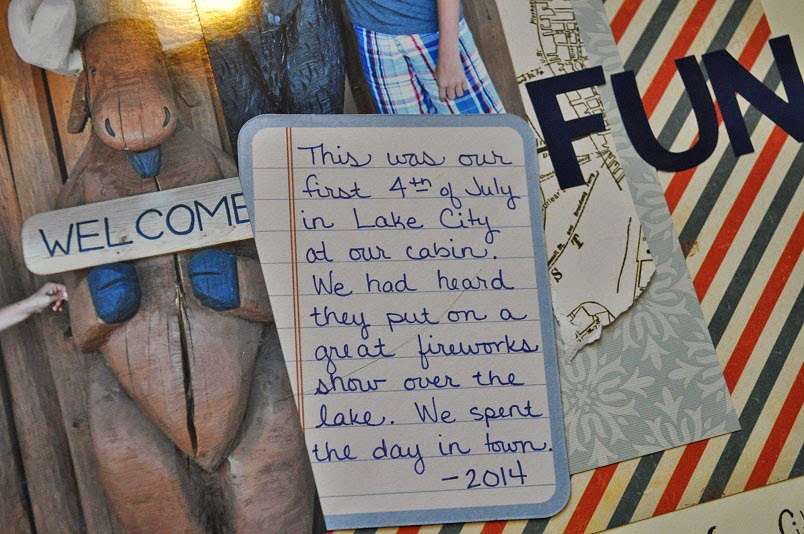 FUN
WELCOME
This was our
first 4th of July
in Lake City
at our cabin.
We had heard
they put on a
great fireworks
show over the
lake. We spent
the day in town.
-2014